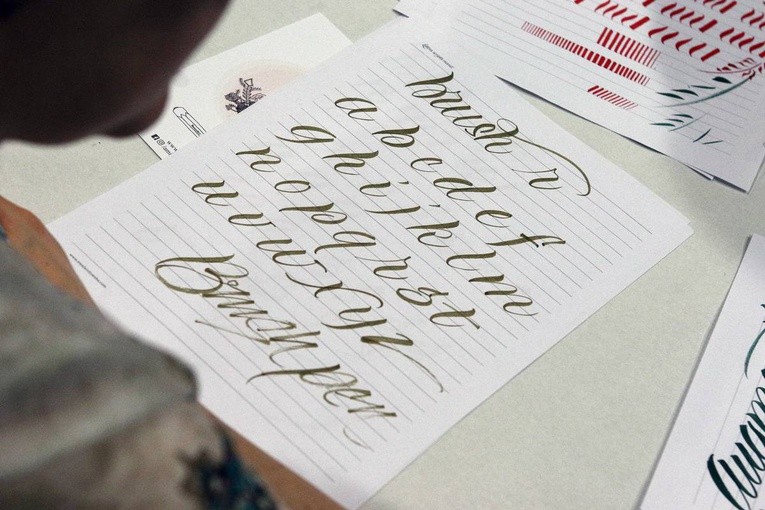 brush r
a b c d e f
g h i j k l m
n o p q r s t
u v w x y z
Brush pen